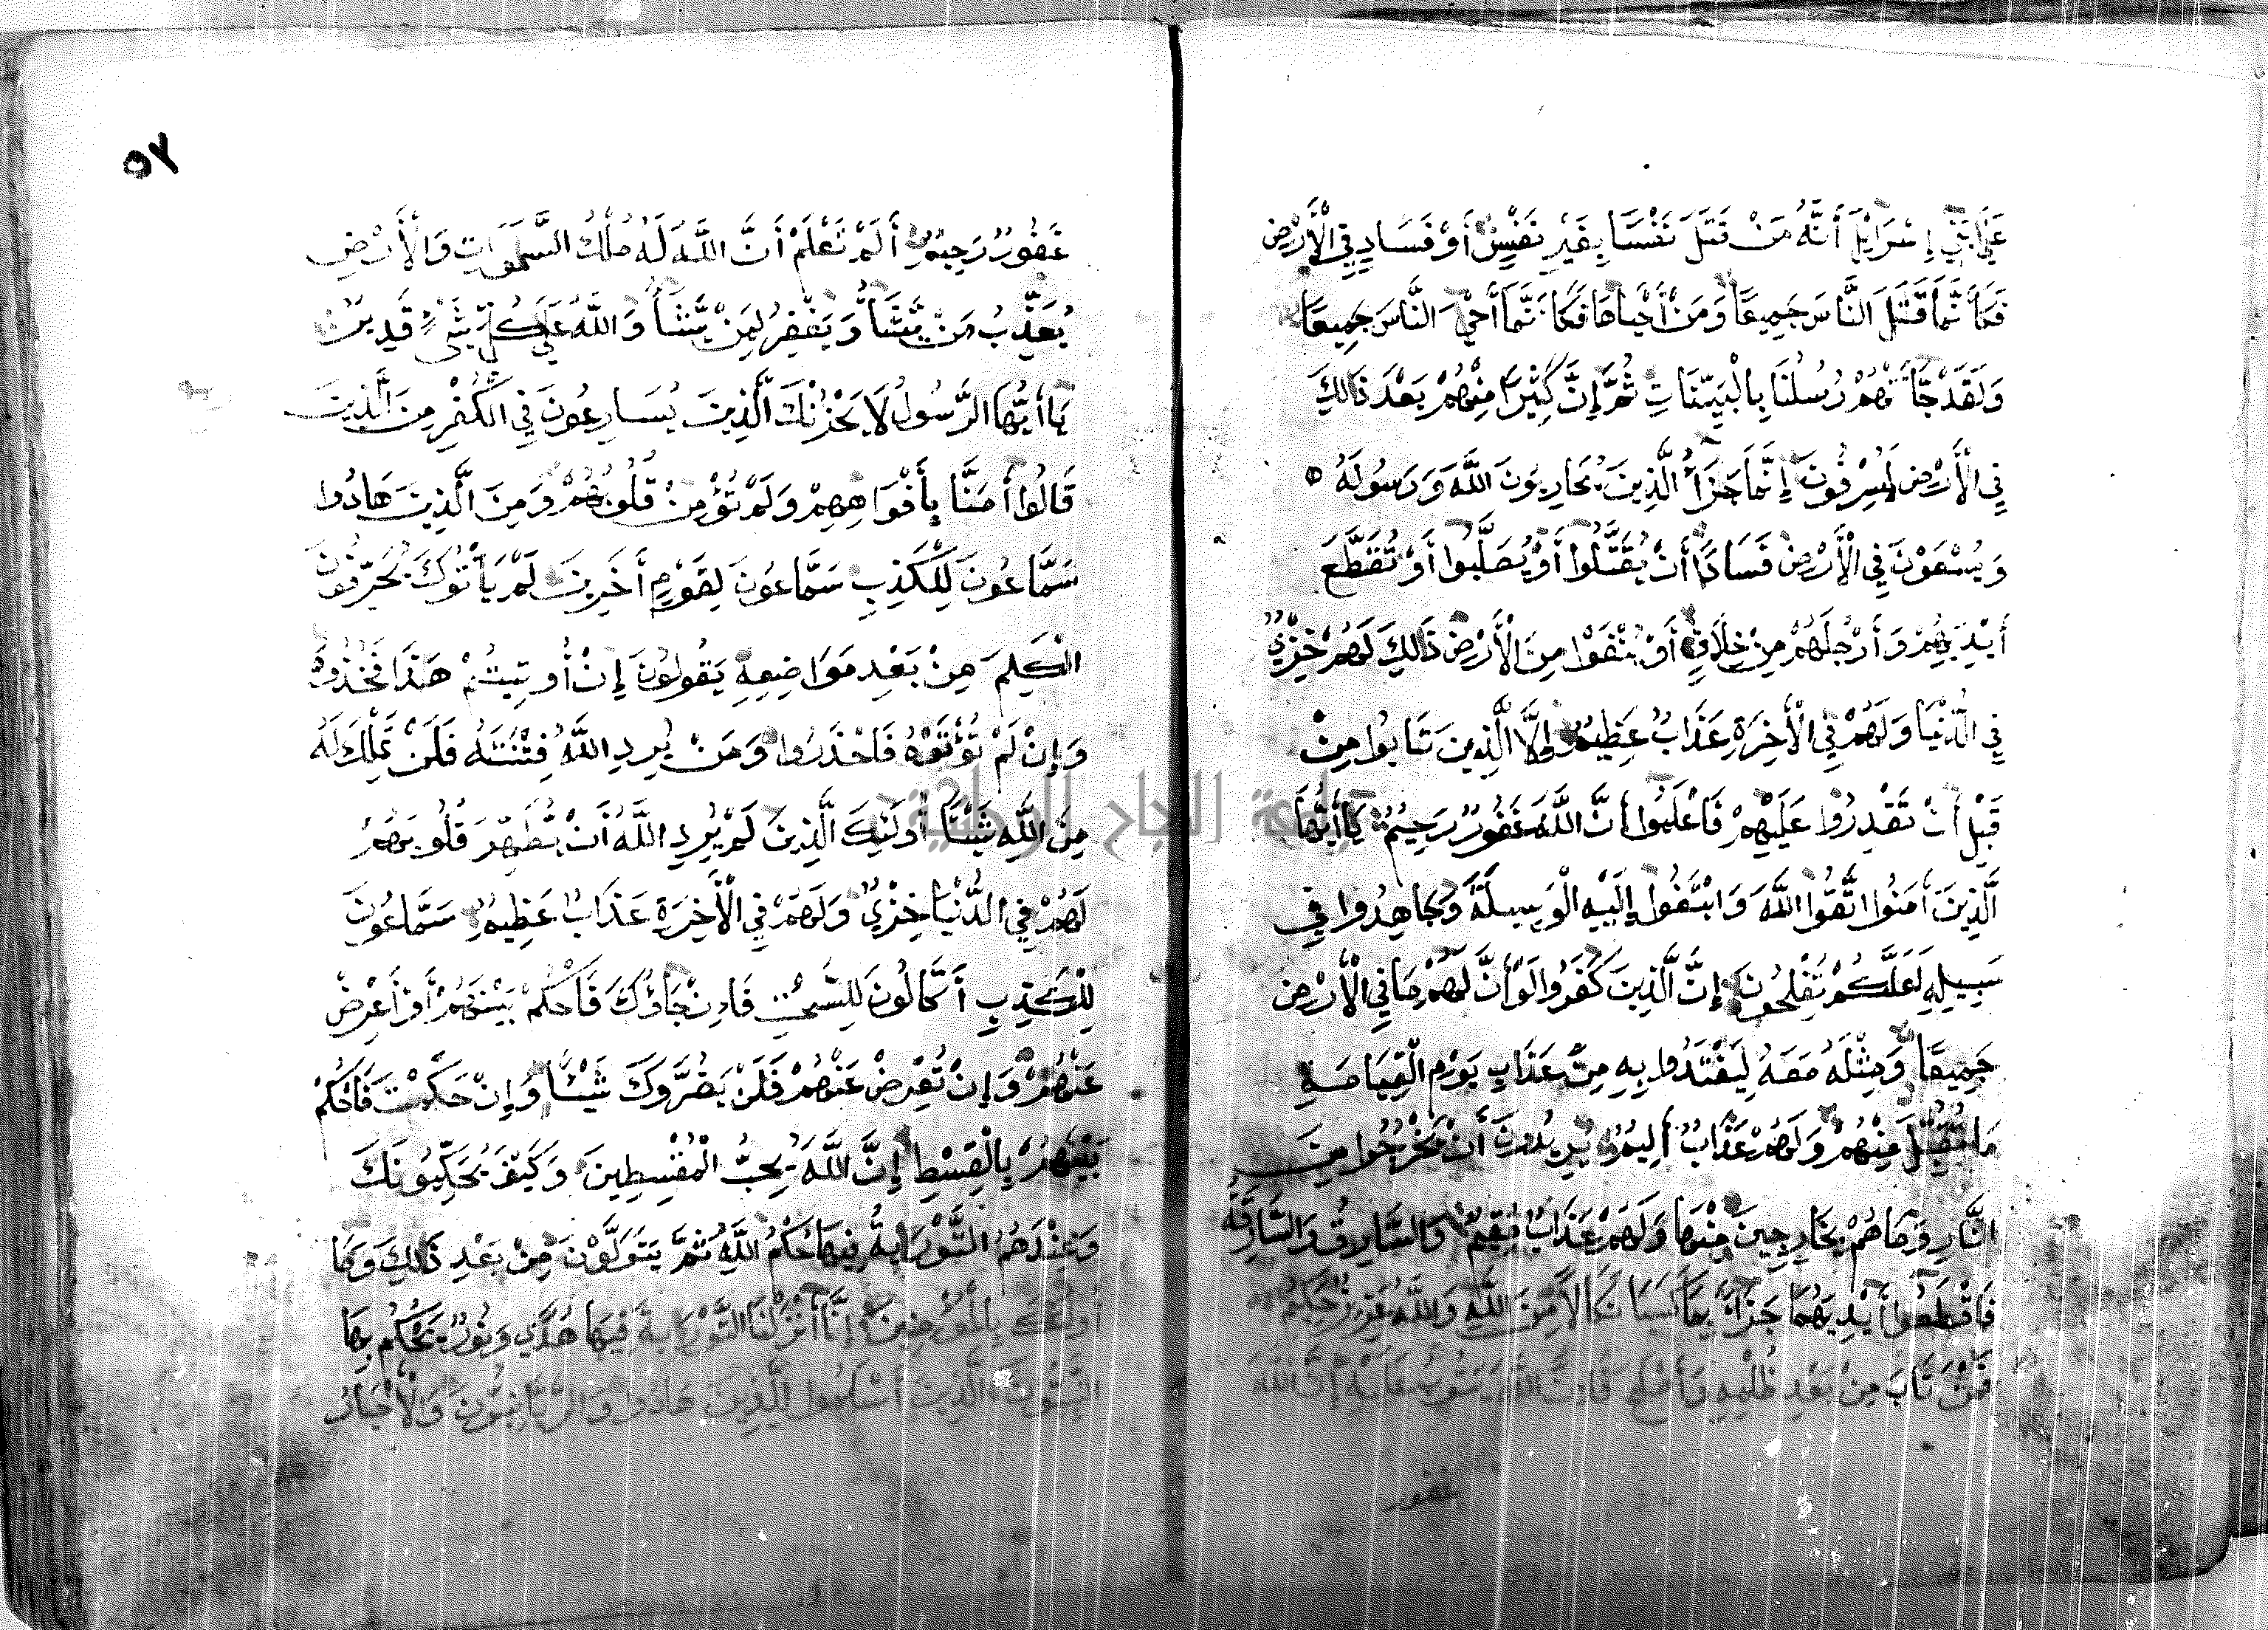 عَلَىٰ بَنِي إِسْرَايِلَ أَنَّهُ مَنْ قَتَلَ نَفْسًا بِغَيْرِ نَفْسٍ أَوْ فَسَادٍ فِي الْأَرْضِ
فَكَأَنَّمَا قَتَلَ النَّاسَ جَمِيعًا وَمَنْ أَحْيَاهَا فَكَأَنَّمَا أَحْيَ النَّاسَ جَمِيعًا
وَلَقَدْ جَآتْهُمْ رُسُلُنَا بِالْبَيِّنَاتِ ثُمَّ إِنَّ كَثِيرًا مِنْهُمْ بَعْدَ ذَالِكَ
فِي الْأَرْضِ لَمُسْرِفُونَ إِنَّمَا جَزَآؤُ الَّذِينَ يُحَارِبُونَ اللَّهَ وَرَسُولَهُ
وَيَسْعَوْنَ فِي الْأَرْضِ فَسَادًا أَنْ يُقَتَّلُوا أَوْ يُصَلَّبُوا أَوْ تُقَطَّعَ
أَيْدِيَهِمْ وَأَرْجُلَهُمْ مِنْ خِلَافٍ أَوْ يُنْفَوْا مِنَ الْأَرْضِ ذَالِكَ لَهُمْ خِزْيٌ
فِي الدُّنْيَا وَلَهُمْ فِي الْأَخِرَةِ عَذَابٌ عَظِيمٌ إِلَّا الَّذِينَ تَابُوا مِنْ
قَبْلِ أَنْ تَقْدِرُوا عَلَيْهِمْ فَاعْلَمُوا أَنَّ اللَّهَ غَفُورٌ رَحِيمٌ يَاأَيُّهَا
الَّذِينَ أَمَنُوا اتَّقُوا اللَّهَ وَابْتَغُوا إِلَيْهِ الْوَسِيلَةَ وَجَاهِدُوا فِي
سَبِيلِهِ لَعَلَّكُمْ تُفْلِحُونَ إِنَّ الَّذِينَ كَفَرُوا لَوْ أَنَّ لَهُمْ مَا فِي الْأَرْضِ
جَمِيعًا وَمِثْلَهُ مَعَهُ لِيَفْتَدُوا بِهِ مِنْ عَذَابِ يَوْمِ الْقِيَامَةِ
مَا تُقُبِّلَ مِنْهُمْ وَلَهُمْ عَذَابٌ أَلِيمٌ يُرِيدُونَ أَنْ يَخْرُجُوا مِنَ
النَّارِ وَمَا هُمْ بِخَارِجِينَ مِنْهَا وَلَهُمْ عَذَابٌ مُقِيمٌ وَالسَّارِقُ وَالسَّارِقَةُ
فَاقْطَعُوا أَيْدِيَهُمَا جَزَآءً بِمَا كَسَبَا نَكَالًا مِنَ اللَّهِ وَاللَّهُ عَزِيزٌ حَكِيمٌ
فَمَنْ تَابَ مِنْ بَعْدِ ظُلْمِهِ وَأَصْلَحَ فَإِنَّ اللَّهَ يَتُوبُ عَلَيْهِ إِنَّ اللَّهَ
غفور
٥٧
غَفُورٌ رَحِيمٌ أَلَمْ تَعْلَمْ أَنَّ اللَّهَ لَهُ مُلْكُ السَّمَوَاتِ وَالْأَرْضِ
يُعَذِّبُ مَنْ يَشَآءُ وَيَغْفِرُ لِمَنْ يَشَآءُ وَاللَّهُ عَلَى كُلِّ شَيْءٍ قَدِيرٌ
يَاأَيُّهَا الرَّسُولُ لَا يَحْزُنْكَ الَّذِينَ يُسَارِعُونَ فِي الْكُفْرِ مِنَ الَّذِينَ
قَالُوا أَمَنَّا بِأَفْوَاهِهِمْ وَلَمْ تُؤْمِنْ قُلُوبُهُمْ وَمِنَ الَّذِينَ هَادُوا
سَمَّاعُونَ لِلْكَذِبِ سَمَّاعُونَ لِقَوْمٍ أَخَرِينَ لَمْ يَأْتُوكَ يُحَرِّفُونَ
الْكَلِمَ مِنْ بَعْدِ مَوَاضِعِهِ يَقُولُونَ إِنْ أُوتِيتُمْ هَذَا فَخُذُوهُ
وَإِنْ لَمْ تُؤْتَوْهُ فَاحْذَرُوا وَمَنْ يُرِدِ اللَّهُ فِتْنَتَهُ فَلَنْ تَمْلِكَ لَهُ
مِنَ اللَّهِ شَيْئًا أُولَئِكَ الَّذِينَ لَمْ يُرِدِ اللَّهُ أَنْ يُطَهِّرَ قُلُوبَهُمْ
لَهُمْ فِي الدُّنْيَا خِزْيٌ وَلَهُمْ فِي الْأَخِرَةِ عَذَابٌ عَظِيمٌ سَمَّاعُونَ
لِلْكَذِبِ أَكَّالُونَ لِلسُّحْتِ فَإِنْ جَاؤُكَ فَاحْكُمْ بَيْنَهُمْ أَوْ أَعْرِضْ
عَنْهُمْ وَإِنْ تُعْرِضْ عَنْهُمْ فَلَنْ يَضُرُّوكَ شَيْئًا وَإِنْ حَكَمْتَ فَاحْكُمْ
بَيْنَهُمْ بِالْقِسْطِ إِنَّ اللَّهَ يُحِبُّ الْمُقْسِطِينَ وَكَيْفَ يُحَكِّمُونَكَ
وَعِنْدَهُمُ التَّوْرَايةُ فِيهَا حُكْمُ اللَّهِ ثُمَّ يَتَوَلَّوْنَ مِنْ بَعْدِ ذَالِكَ وَمَا
أُولَئِكَ بِالْمُؤْمِنِينَ إِنَّا أَنْزَلْنَا التَّوْرَايةَ فِيهَا هُدًى وَنُورٌ يَحْكُمُ بِهَا
النَّبِيُّونَ الَّذِينَ أَسْلَمُوا لِلَّذِينَ هَادُوا وَالرَّبَّانِيُّونَ وَالْأَحْبَارُ